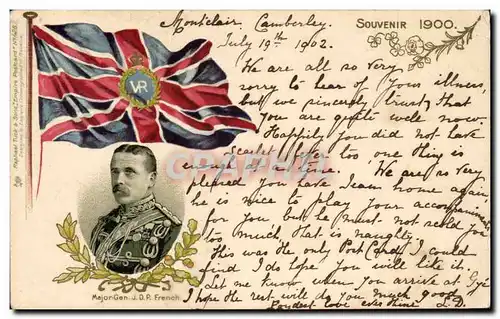 Souvenir 1900.
Montclair. Camberley.
July 19th 1902.
We are all so very
sorry to hear of your illness,
but we sincerely trust that
you are quite well now.
Happily you did not have
Scarlet fever too one thing is
We are so very
pleased you have Team home again,
he is nice to play your accompaniments
for you but he must not scold you
too much, that is naughty.
This was the only Post Card I could
find I do hope you will like it.
Let me know when you arrive at
I hope the rest will do you much good.
Fondest love L.D.
V R
Major-Gen. J.D.P. French.
Raphael Tuck & Sons' "Empire" Postcard